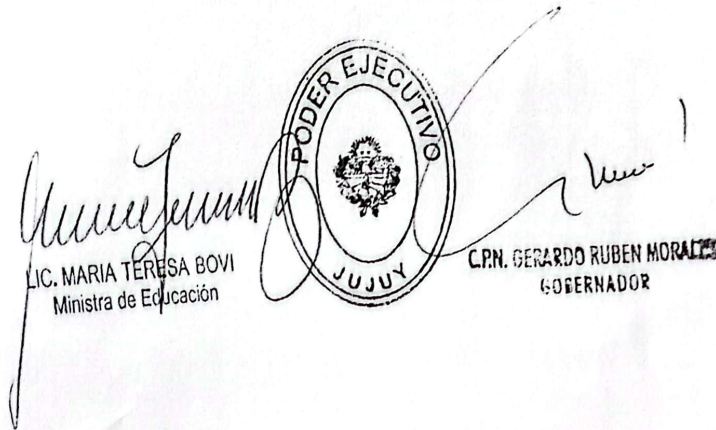 PODER EJECUTIVO
JUJUY
LIC. MARIA TERESA BOVI
Ministra de Educación
C.P.N. GERARDO RUBEN MORALES
GOBERNADOR